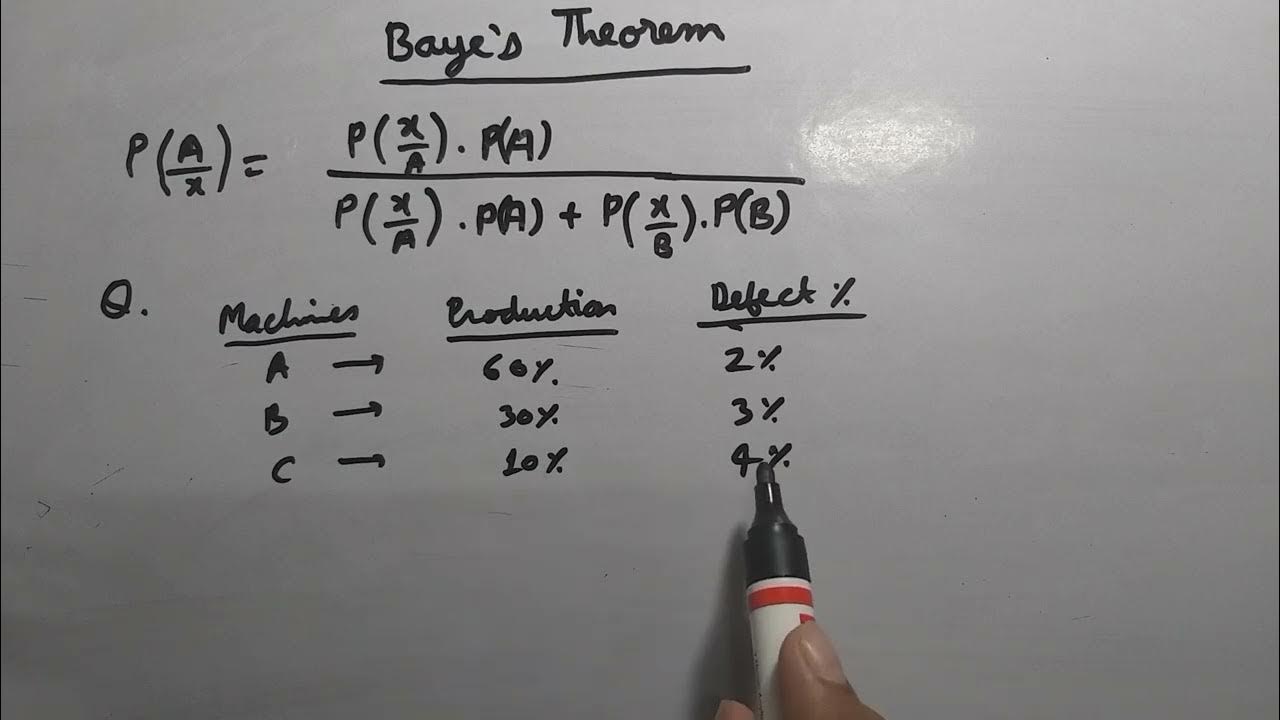 Baye's Theorem
P(A/x) = P(x/A) . P(A) / P(x/A) . P(A) + P(x/B) . P(B)
Q. Machines Production Defect %
A → 60% 2%
B → 30% 3%
C → 10% 4%